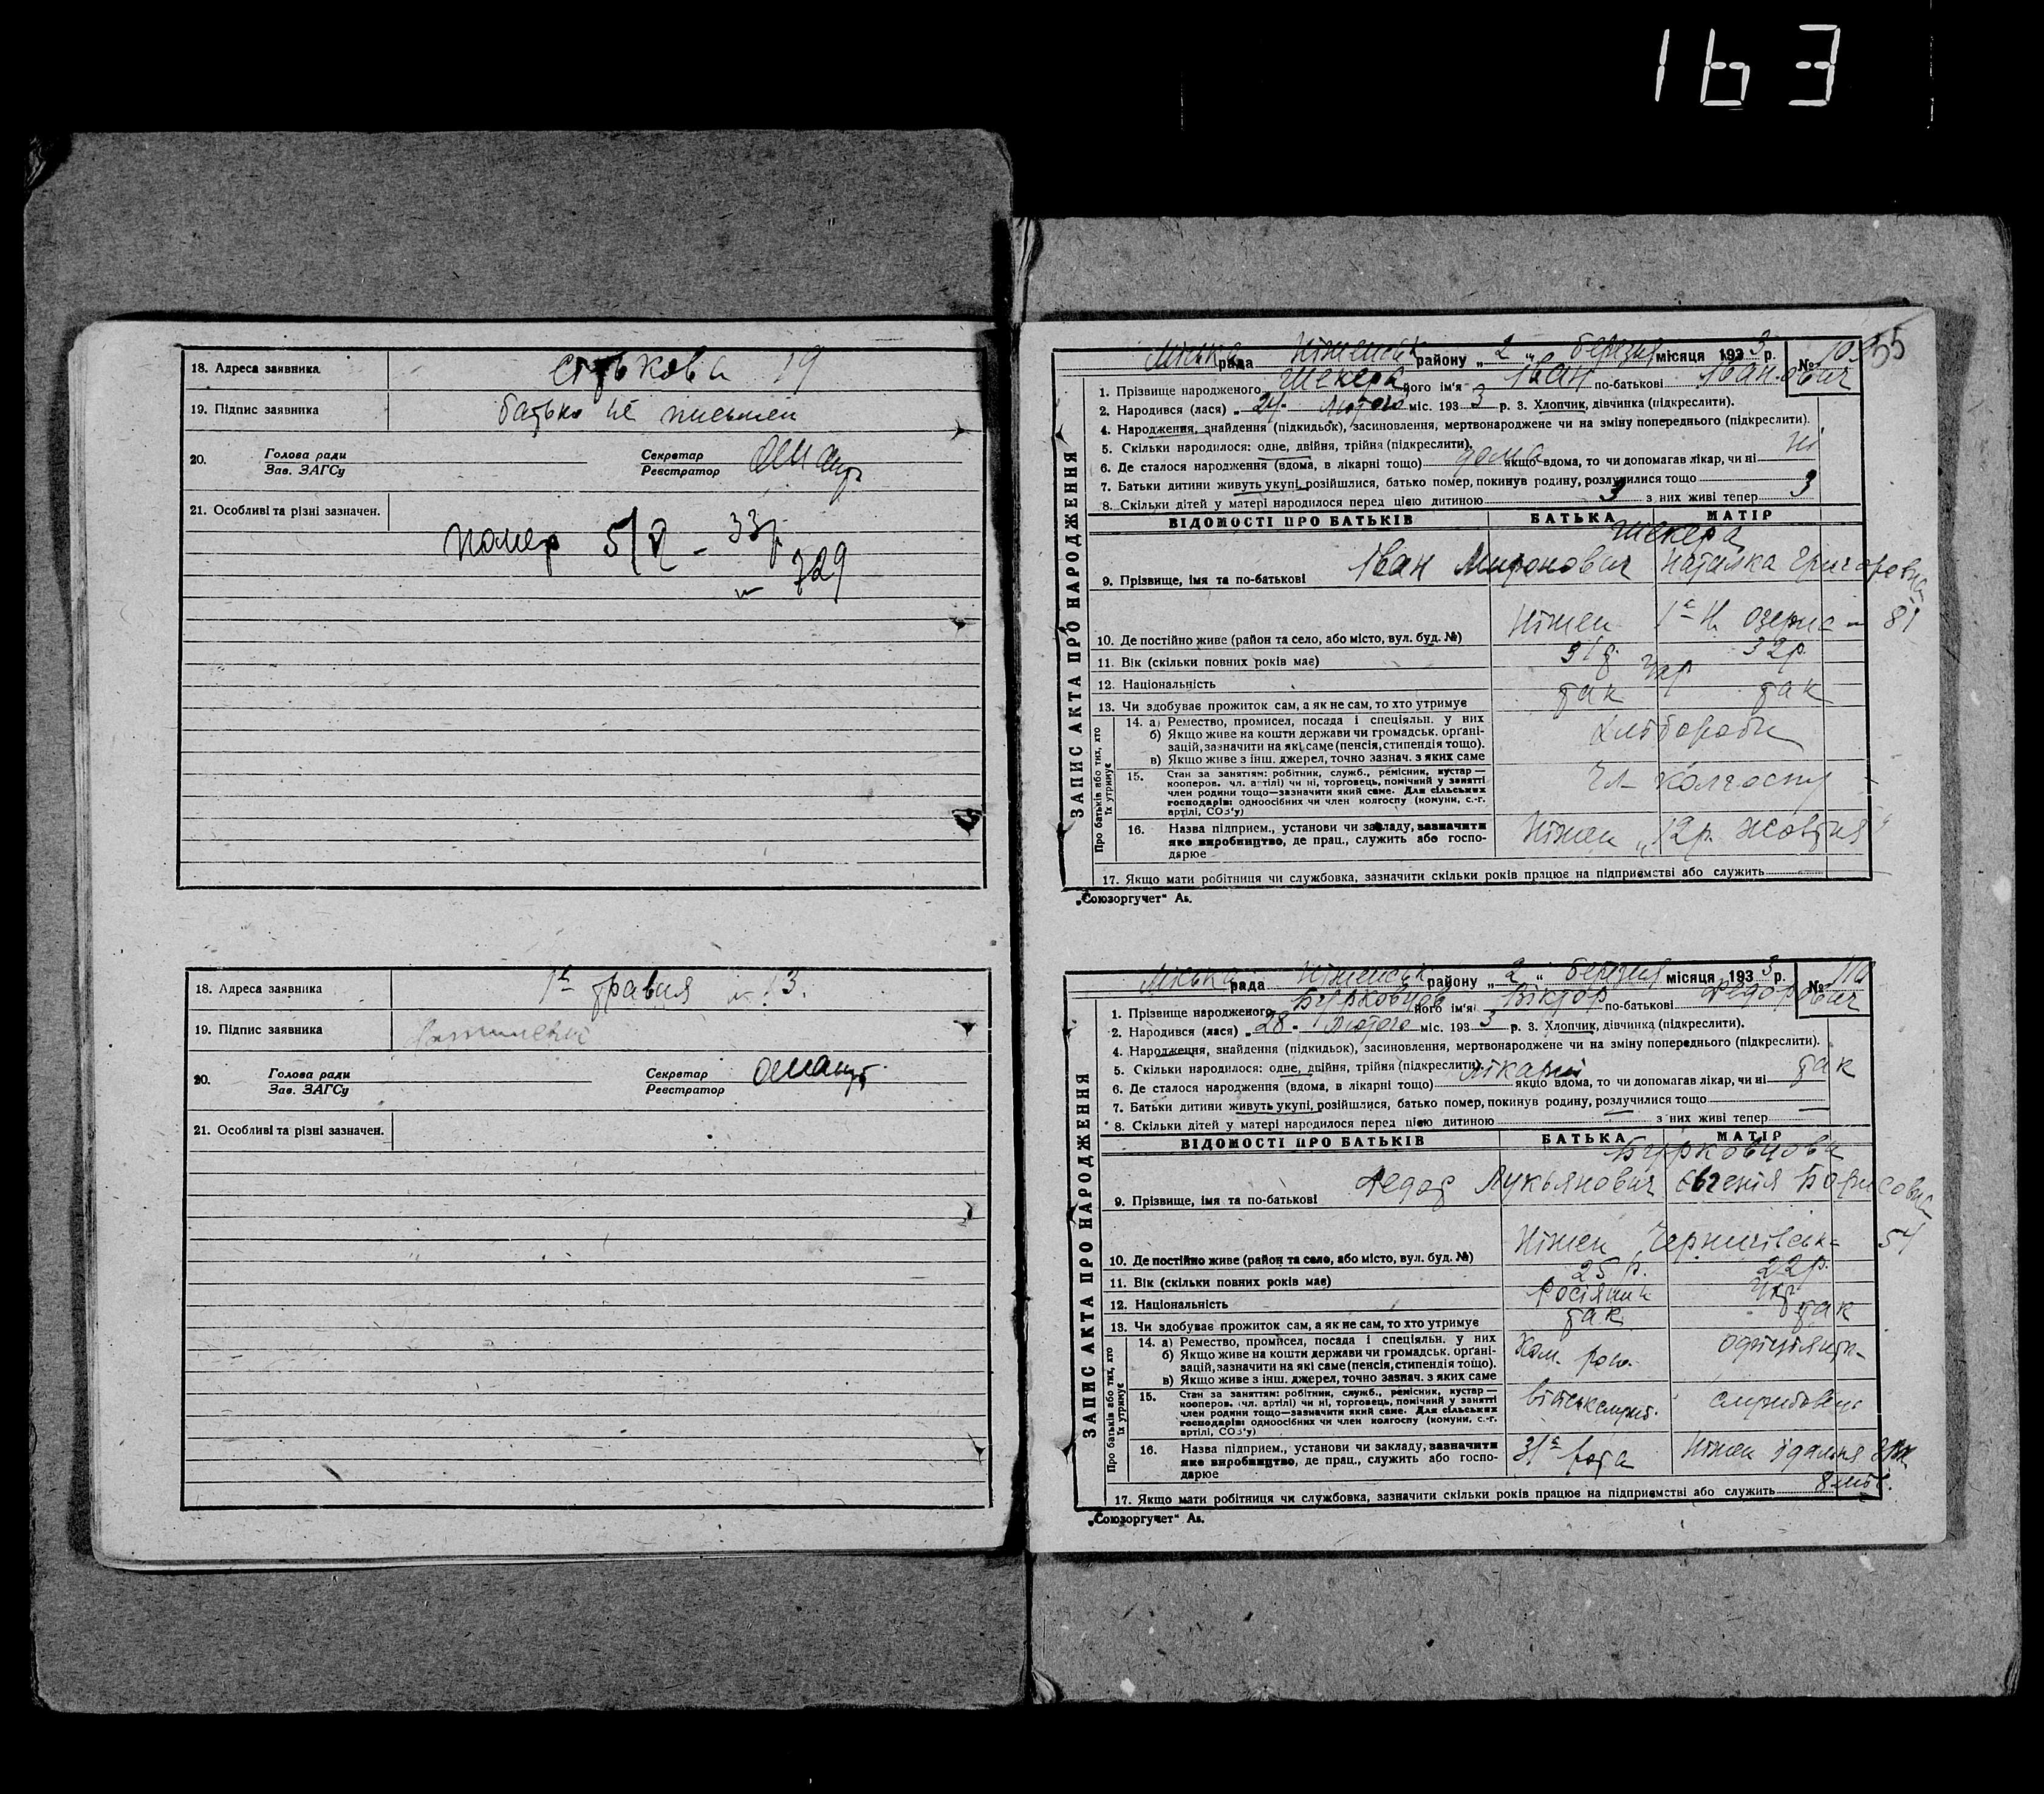 163
18. Адреса заявника 19
19. Підпис заявника батько не письмен
20. Голова ради Зав. ЗАГСу Секретар Реєстратор
21. Особливі та різні зазначен.
помер 5/V - 33р
№ 329
18. Адреса заявника 1е травня № 13.
19. Підпис заявника
20. Голова ради Зав. ЗАГСу Секретар Реєстратор
21. Особливі та різні зазначен.
55
ЗАПИС АКТА ПРО НАРОДЖЕННЯ
Міська рада Ніженськ району „ 2 „ березня місяця 193 3 р. №
1. Прізвище народженого Шекера його ім'я Іван по-батькові Іванович
2. Народився (лася) „ 24 „ Лютого міс. 193 3 р. 3. Хлопчик, дівчинка (підкреслити).
4. Народження, знайдення (підкидьок), засиновлення, мертвонароджене чи на зміну попереднього (підкреслити).
5. Скільки народилося: одне, двійня, трійня (підкреслити).
6. Де сталося народження (вдома, в лікарні тощо) дома якщо вдома, то чи допомагав лікар, чи ні ні
7. Батьки дитини живуть укупі, розійшлися, батько помер, покинув родину, розлучилися тощо
8. Скільки дітей у матері народилося перед цією дитиною 3 з них живі тепер 3
ВІДОМОСТІ ПРО БАТЬКІВ БАТЬКА МАТІР
Шекера
9. Прізвище, імя та по-батькові Іван Миронович Наталка Григоровна
10. Де постійно живе (район та село, або місто, вул. буд. №) Ніжен 81
11. Вік (скільки повних років має) 31р. 32р.
12. Національність Укр
13. Чи здобуває прожиток сам, а як не сам, то хто утримує так так
Про батьків або тих, хто їх утримує
14. а) Ремество, промисел, посада і спеціяльн. у них
б) Якщо живе на кошти держави чи громадськ. орґані-
зацій, зазначити на які саме (пенсія, стипендія тощо).
в) Якщо живе з інш. джерел, точно зазнач. з яких саме
Хлібороби
15. Стан за заняттям: робітник, служб., ремісник, кустар—
кооперов. чл. артілі) чи ні, торговець, помічний у занятті
член родини тощо—зазначити який саме. Для сільських
господарів: одноосібних чи член колгоспу (комуни, с.-г.
артілі, СОЗ'у)
Чл колгоспу
16. Назва підприєм., установи чи закладу, зазначити
яке виробництво, де прац., служить або госпо-
дарює
Ніжен „12р. Жовтня"
17. Якщо мати робітниця чи службовка, зазначити скільки років працює на підприємстві або служить
„Союзоргучет" Ав.
ЗАПИС АКТА ПРО НАРОДЖЕННЯ
Міська рада Ніженськ району „ 2 „ березня місяця 193 3 р. № 110
1. Прізвище народженого Бурковцов його ім'я Віктор по-батькові Федорович
2. Народився (лася) „ 28 „ Лютого міс. 193 3 р. 3. Хлопчик, дівчинка (підкреслити).
4. Народження, знайдення (підкидьок), засиновлення, мертвонароджене чи на зміну попереднього (підкреслити).
5. Скільки народилося: одне, двійня, трійня (підкреслити).
6. Де сталося народження (вдома, в лікарні тощо) лікарні якщо вдома, то чи допомагав лікар, чи ні так
7. Батьки дитини живуть укупі, розійшлися, батько помер, покинув родину, розлучилися тощо
8. Скільки дітей у матері народилося перед цією дитиною — з них живі тепер —
ВІДОМОСТІ ПРО БАТЬКІВ БАТЬКА МАТІР
Бурковцови
9. Прізвище, імя та по-батькові Федор Лукьянович Євгенія Борисовна
10. Де постійно живе (район та село, або місто, вул. буд. №) Ніжен Чернигівськ-
11. Вік (скільки повних років має) 25 р. 22р.
12. Національність Росіянин Укр
13. Чи здобуває прожиток сам, а як не сам, то хто утримує так так
Про батьків або тих, хто їх утримує
14. а) Ремество, промисел, посада і спеціяльн. у них
б) Якщо живе на кошти держави чи громадськ. орґані-
зацій, зазначити на які саме (пенсія, стипендія тощо).
в) Якщо живе з інш. джерел, точно зазнач. з яких саме
Ком. рот. офіціянтк-
15. Стан за заняттям: робітник, служб., ремісник, кустар—
кооперов. (чл. артілі) чи ні, торговець, помічний у занятті
член родини тощо—зазначити який саме. Для сільських
господарів: одноосібних чи член колгоспу (комуни, с.-г.
артілі, СОЗ'у)
військслужб. службовець
16. Назва підприєм., установи чи закладу, зазначити
яке виробництво, де прац., служить або госпо-
дарює
31а рота Ніжен їдальня
17. Якщо мати робітниця чи службовка, зазначити скільки років працює на підприємстві або служить 8 міс.
„Союзоргучет" Ав.